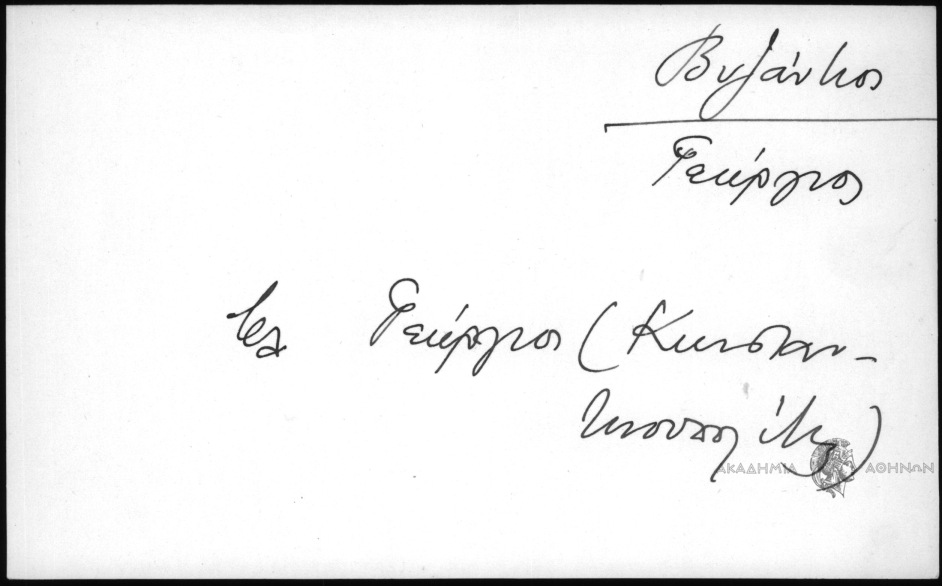 Βυζάντιος
Γεώργιος
βλ Γεώργιος (Κωνσταν-
τινουπολίτης)
ΑΚΑΔΗΜΙΑ ΑΘΗΝΩΝ